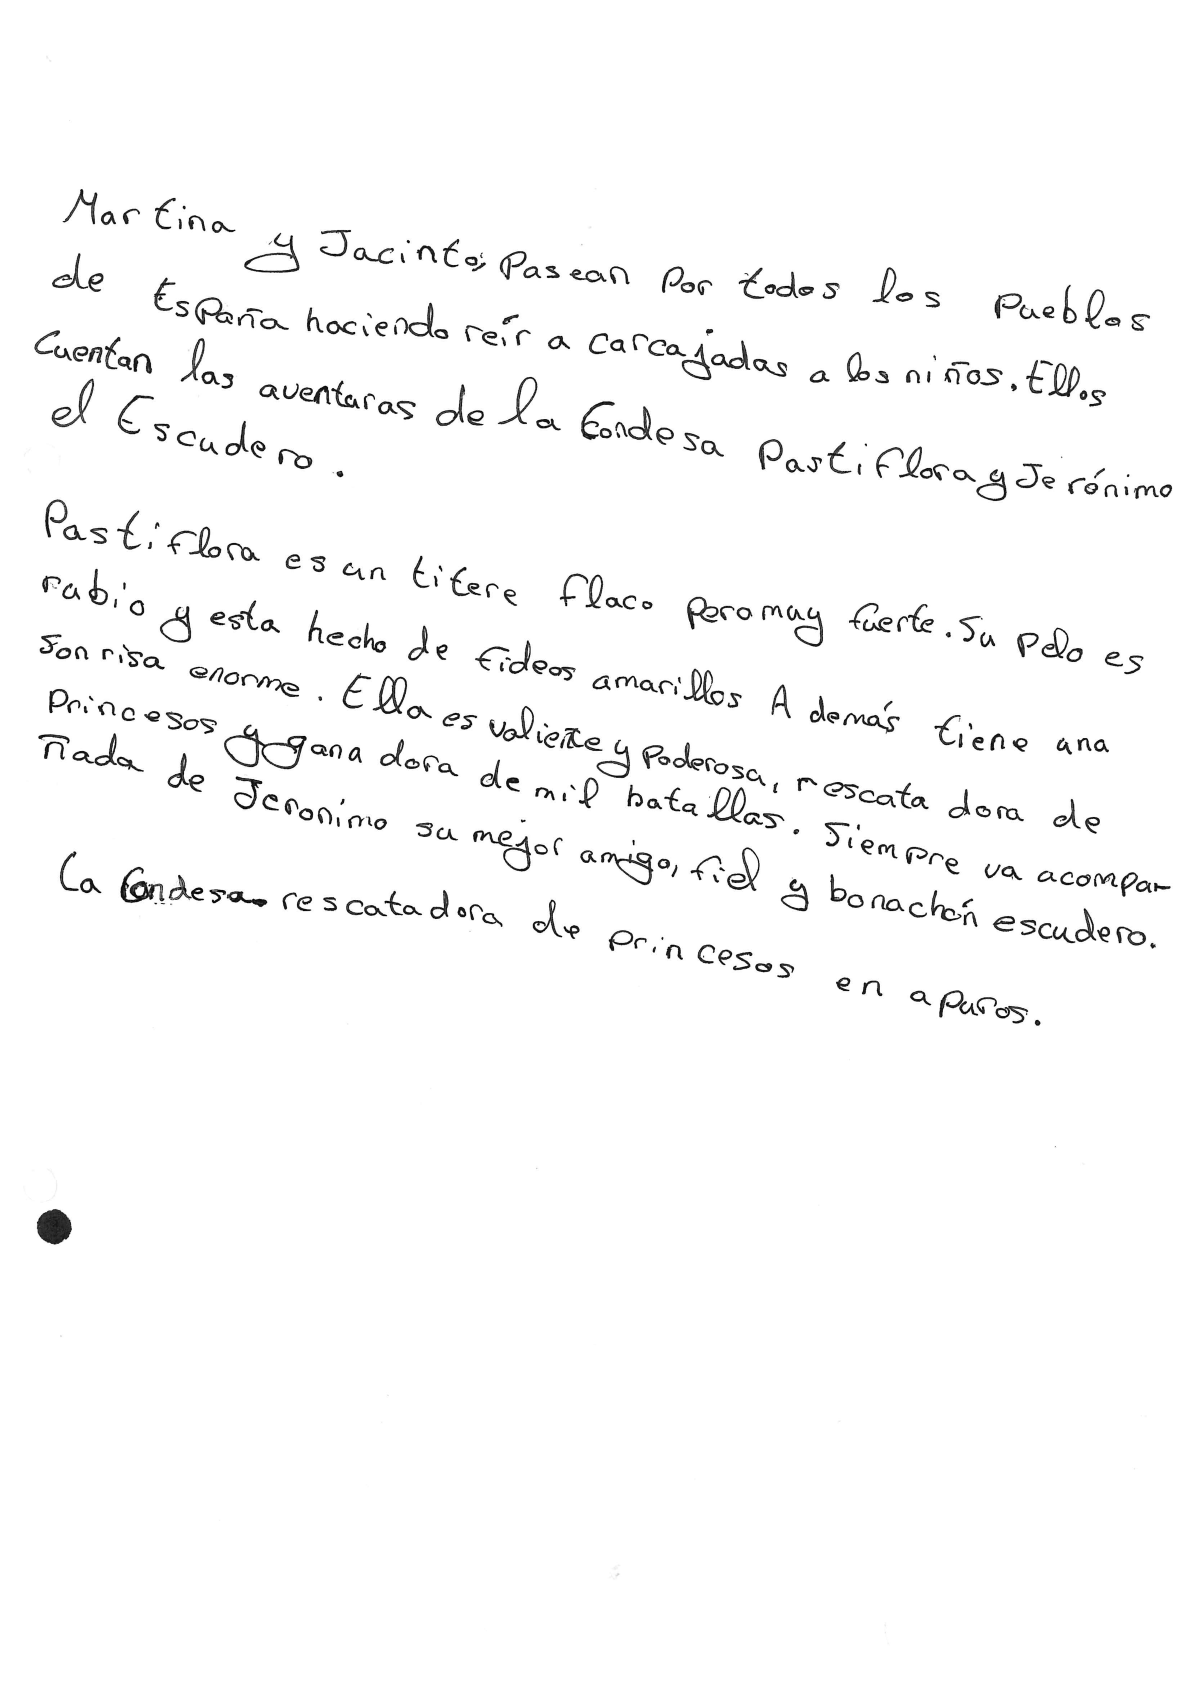 Martina y Jacinto, Pasean Por todos los Pueblos
de España haciendo reír a carcajadas a los niños. Ellos
Cuentan las aventuras de la Condesa Pastiflora y Jerónimo
el Escudero.
Pastiflora es un titere flaco pero muy fuerte. Su pelo es
rubio y esta hecho de fideos amarillos Además tiene una
sonrisa enorme. Ella es valiente y Poderosa, rescatadora de
Princesos y ganadora de mil batallas. Siempre va acompa-
ñada de Jeronimo su mejor amigo, fiel y bonachón escudero.
La Condesa rescatadora de princesos en apuros.